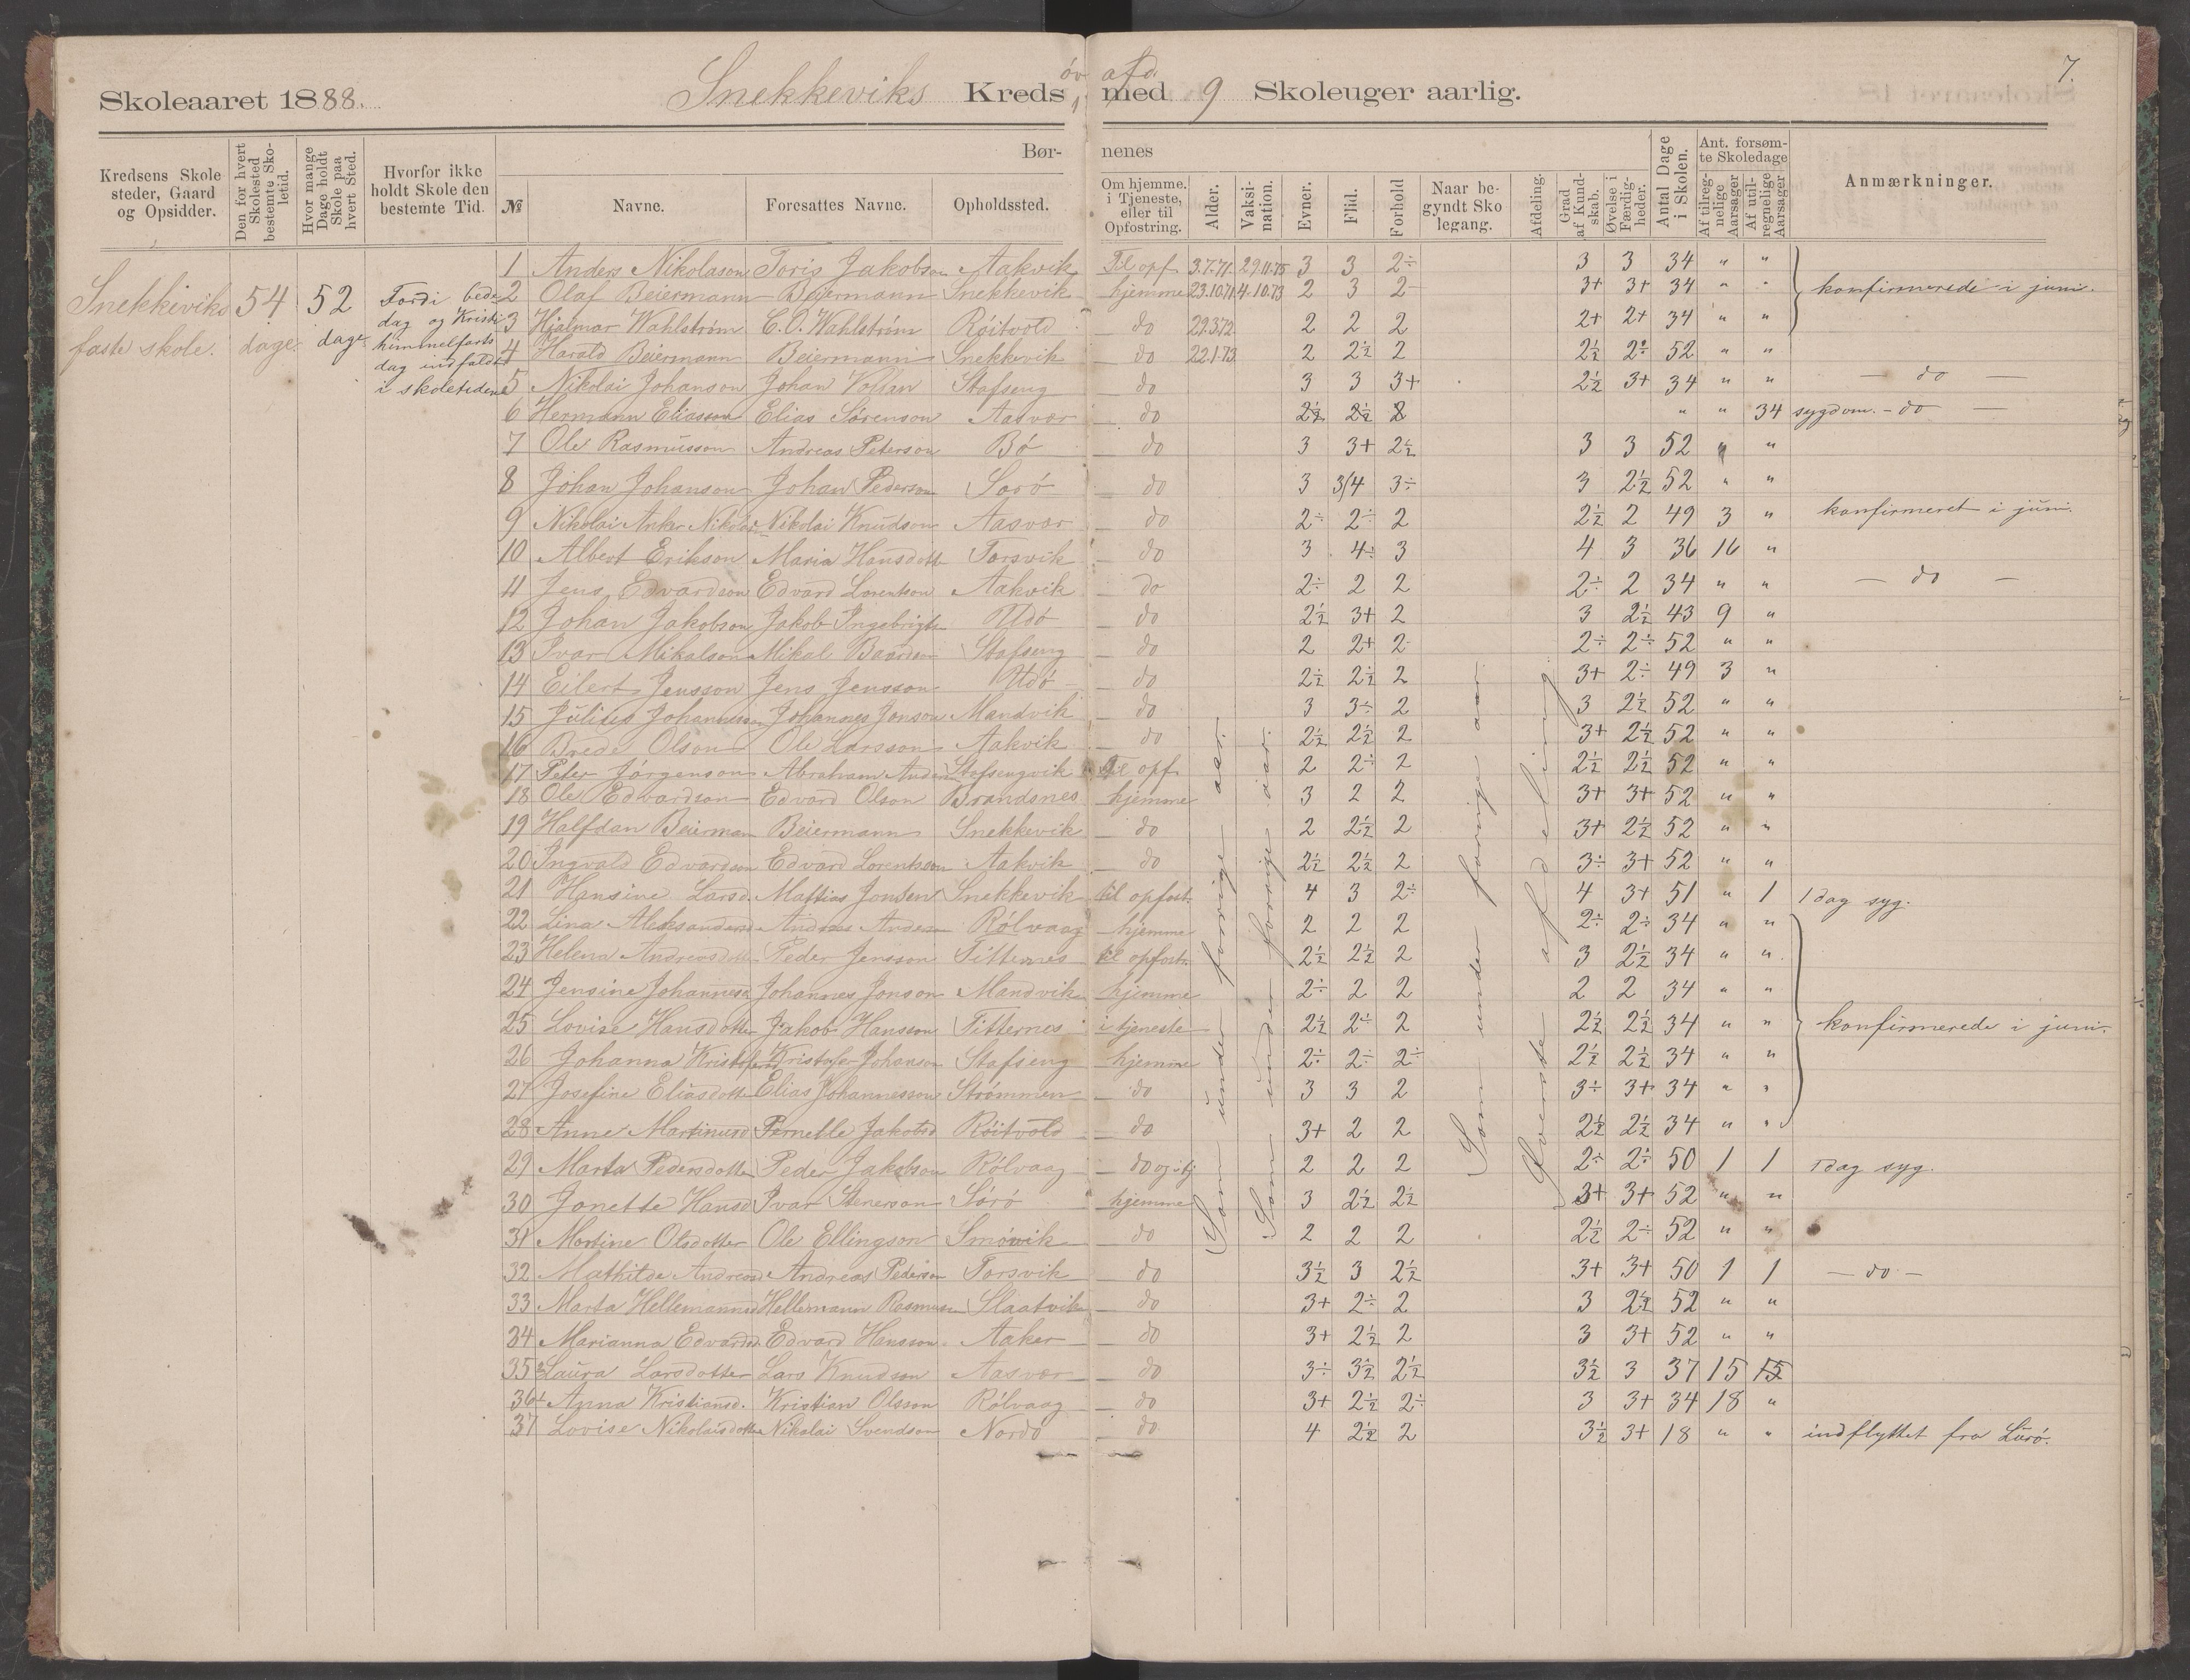 7.
Skoleaaret 1888. Snekkeviks Kreds, øv. afd. med 9 Skoleuger aarlig.
Kredsens Skole steder, Gaard og Opsidder. | Den for hvert Skolested bestemte Skoletid. | Hvor mange Dage holdt Skole paa hvert Sted. | Hvorfor ikke holdt Skole den bestemte Tid. | Børnenes | Antal Dage i Skolen. | Ant. forsømte Skoledage | Anmærkninger.
№ | Navne. | Foresattes Navne. | Opholdssted. | Om hjemme, i Tjeneste, eller til Opfostring. | Alder. | Vaksination. | Evner. | Flid. | Forhold | Naar begyndt Skolegang. | Afdeling. | Grad af Kundskab. | Øvelse i Færdigheder. | Af tilregnelige Aarsager | Af utilregnelige Aarsager
Snekkeviks faste skole. | 54 dage. | 52 dage. | Fordi bededag og Kristi himmelfartsdag indfaldt i skoletiden
1 Anders Nikolason Toris Jakobson Aakvik Til opf. 3.7.71. 29.11.75 3 3 2÷ 3 3 34 " "
2 Olaf Beiermann Beiermann Snekkevik hjemme 23.10.71. 4.10.73 2 3 2 3+ 3+ 34 " " konfirmerede i juni.
3 Hjalmar Wahlstrøm C.O. Wahlstrøm Røitvold do 29.3.72. 2 2 2 2+ 2+ 34 " "
4 Harald Beiermann Beiermann Snekkevik do 22.1.73. 2 2½ 2 2½ 2÷ 52 " "
5 Nikolai Johanson Johan Stafseng do 3 3 3+ 2½ 3+ 34 " " — do —
6 Hermann Eliasson Elias Sørenson Aasvær do 2½ 2½ 2 " " 34 sygdom. - do —
7 Ole Rasmusson Andreas Peterson Bø do 3 3+ 2½ 3 3 52 " "
8 Johan Johanson Johan Pederson Sørø do 3 3/4 3÷ 3 2½ 52 " "
9 Nikolai Anker Nikolai Nikolai Knudson Aasvær do 2÷ 2÷ 2 2½ 2 49 3 " konfirmeret i juni.
10 Albert Erikson Maria Hansdott Torsvik do 3 4÷ 3 4 3 36 16 "
11 Jens Edvardson Edvard Lorentson Aakvik do 2÷ 2 2 2÷ 2 34 " " — do —
12 Johan Jakobson Jakob Ingebrigts Udø do 2½ 3+ 2 3 2½ 43 9 "
13 Ivar Mikalson Mikal Baardsn Stafseng do 2 2+ 2 2÷ 2÷ 52 " "
14 Eilert Jensson Jens Jensson Udø do 2½ 2½ 2 3+ 2÷ 49 3 "
15 Julius Johannesson Johannes Jonson Mandvik do 3 3÷ 2 3 2½ 52 " "
16 Brede Olson Ole Larsson Aakvik do 2½ 2½ 2 3+ 2½ 52 " "
17 Peter Jørgenson Abraham Anders Stafsengvik til opf. 2 2÷ 2 2½ 2½ 52 " "
18 Ole Edvardson Edvard Olson Brandsnes hjemme 3 2 2 3+ 3+ 52 " "
19 Halfdan Beierman Beiermann Snekkevik do 2 2½ 2 3+ 2½ 52 " "
20 Ingvald Edvardson Edvard Lorentson Aakvik do 2½ 2½ 2 3÷ 3+ 52 " "
21 Hansine Larsd. Mattias Jonsen Snekkevik til opfost. 4 3 2÷ 4 3+ 51 " 1 1 dag syg.
22 Lina Aleksandersd Andreas Anders Rølvaag hjemme 2 2 2 2÷ 2÷ 34 " "
23 Helena Andreasdotte Peder Jensson Titternes til opfostr. 2½ 2½ 2 3 2½ 34 " "
24 Jensine Johannesd Johannes Jonson Mandvik hjemme 2÷ 2 2 2 2 34 " "
25 Lovise Hansdotter Jakob Hansson Titternes i tjeneste 2½ 2÷ 2 2½ 2½ 34 " " konfirmerede i juni.
26 Johanna Kristofersd Kristofer Johanson Stafseng hjemme 2÷ 2÷ 2÷ 2½ 2½ 34 " "
27 Josefine Eliasdotte Elias Johannesson Strømmen do 3 3 2 3÷ 3+ 34 " "
28 Anne Martinusd Pernelle Jakobsd Røitvold do 3+ 2 2 2½ 2½ 34 " "
29 Marta Pedersdotter Peder Jakobson Rølvaag do og i tj 2 2 2 2÷ 2÷ 50 1 1 1 dag syg.
30 Jonette Hansd Ivar Stenerson Sørø hjemme 3 2½ 2½ 3+ 3+ 52 " "
31 Martine Olsdotter Ole Ellingson Smøvik do 2 2 2 2½ 2÷ 52 " "
32 Mathilde Andreasd Andreas Pederson Torsvik do 3½ 3 2½ 3+ 3+ 50 1 1 — do —
33 Marta Hellemannsd Hellemann Rasmussn Slaatvik do 3+ 2÷ 2 3 2½ 52 " "
34 Marianna Edvardsd Edvard Hansson Aaker do 3+ 2½ 2 3 3+ 52 " "
35 Laura Larsdotter Lars Knudson Aasvær do 3÷ 3½ 2½ 3½ 3 37 15 15
36 Anna Kristiansd. Kristian Olsson Rølvaag do 3+ 2½ 2÷ 3 3+ 34 18 "
37 Lovise Nikolaisdotte Nikolai Svendson Nordø do 4 2½ 2 3½ 3+ 18 " " indflyttet fra Lurø.
Som under forrige aar.
Som under forrige aar.
Som under forrige aar
Øverste afdeling